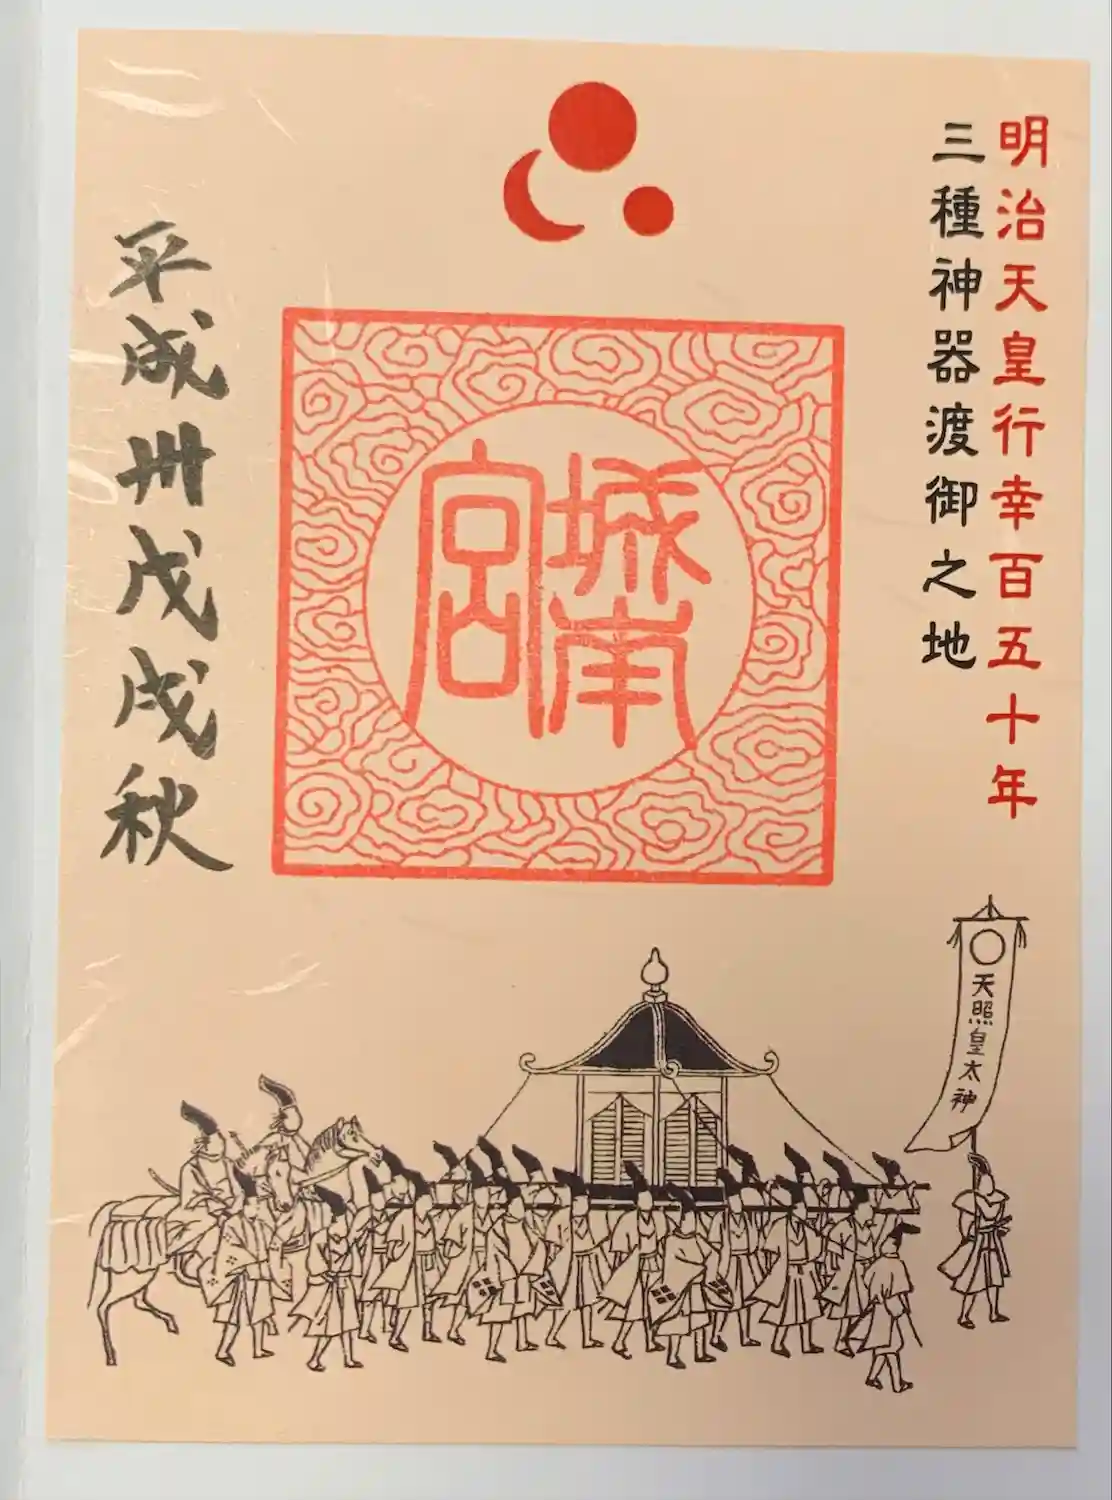 明治天皇行幸百五十年
三種神器渡御之地
城南
宮
平成卅戊戌秋
天照皇太神